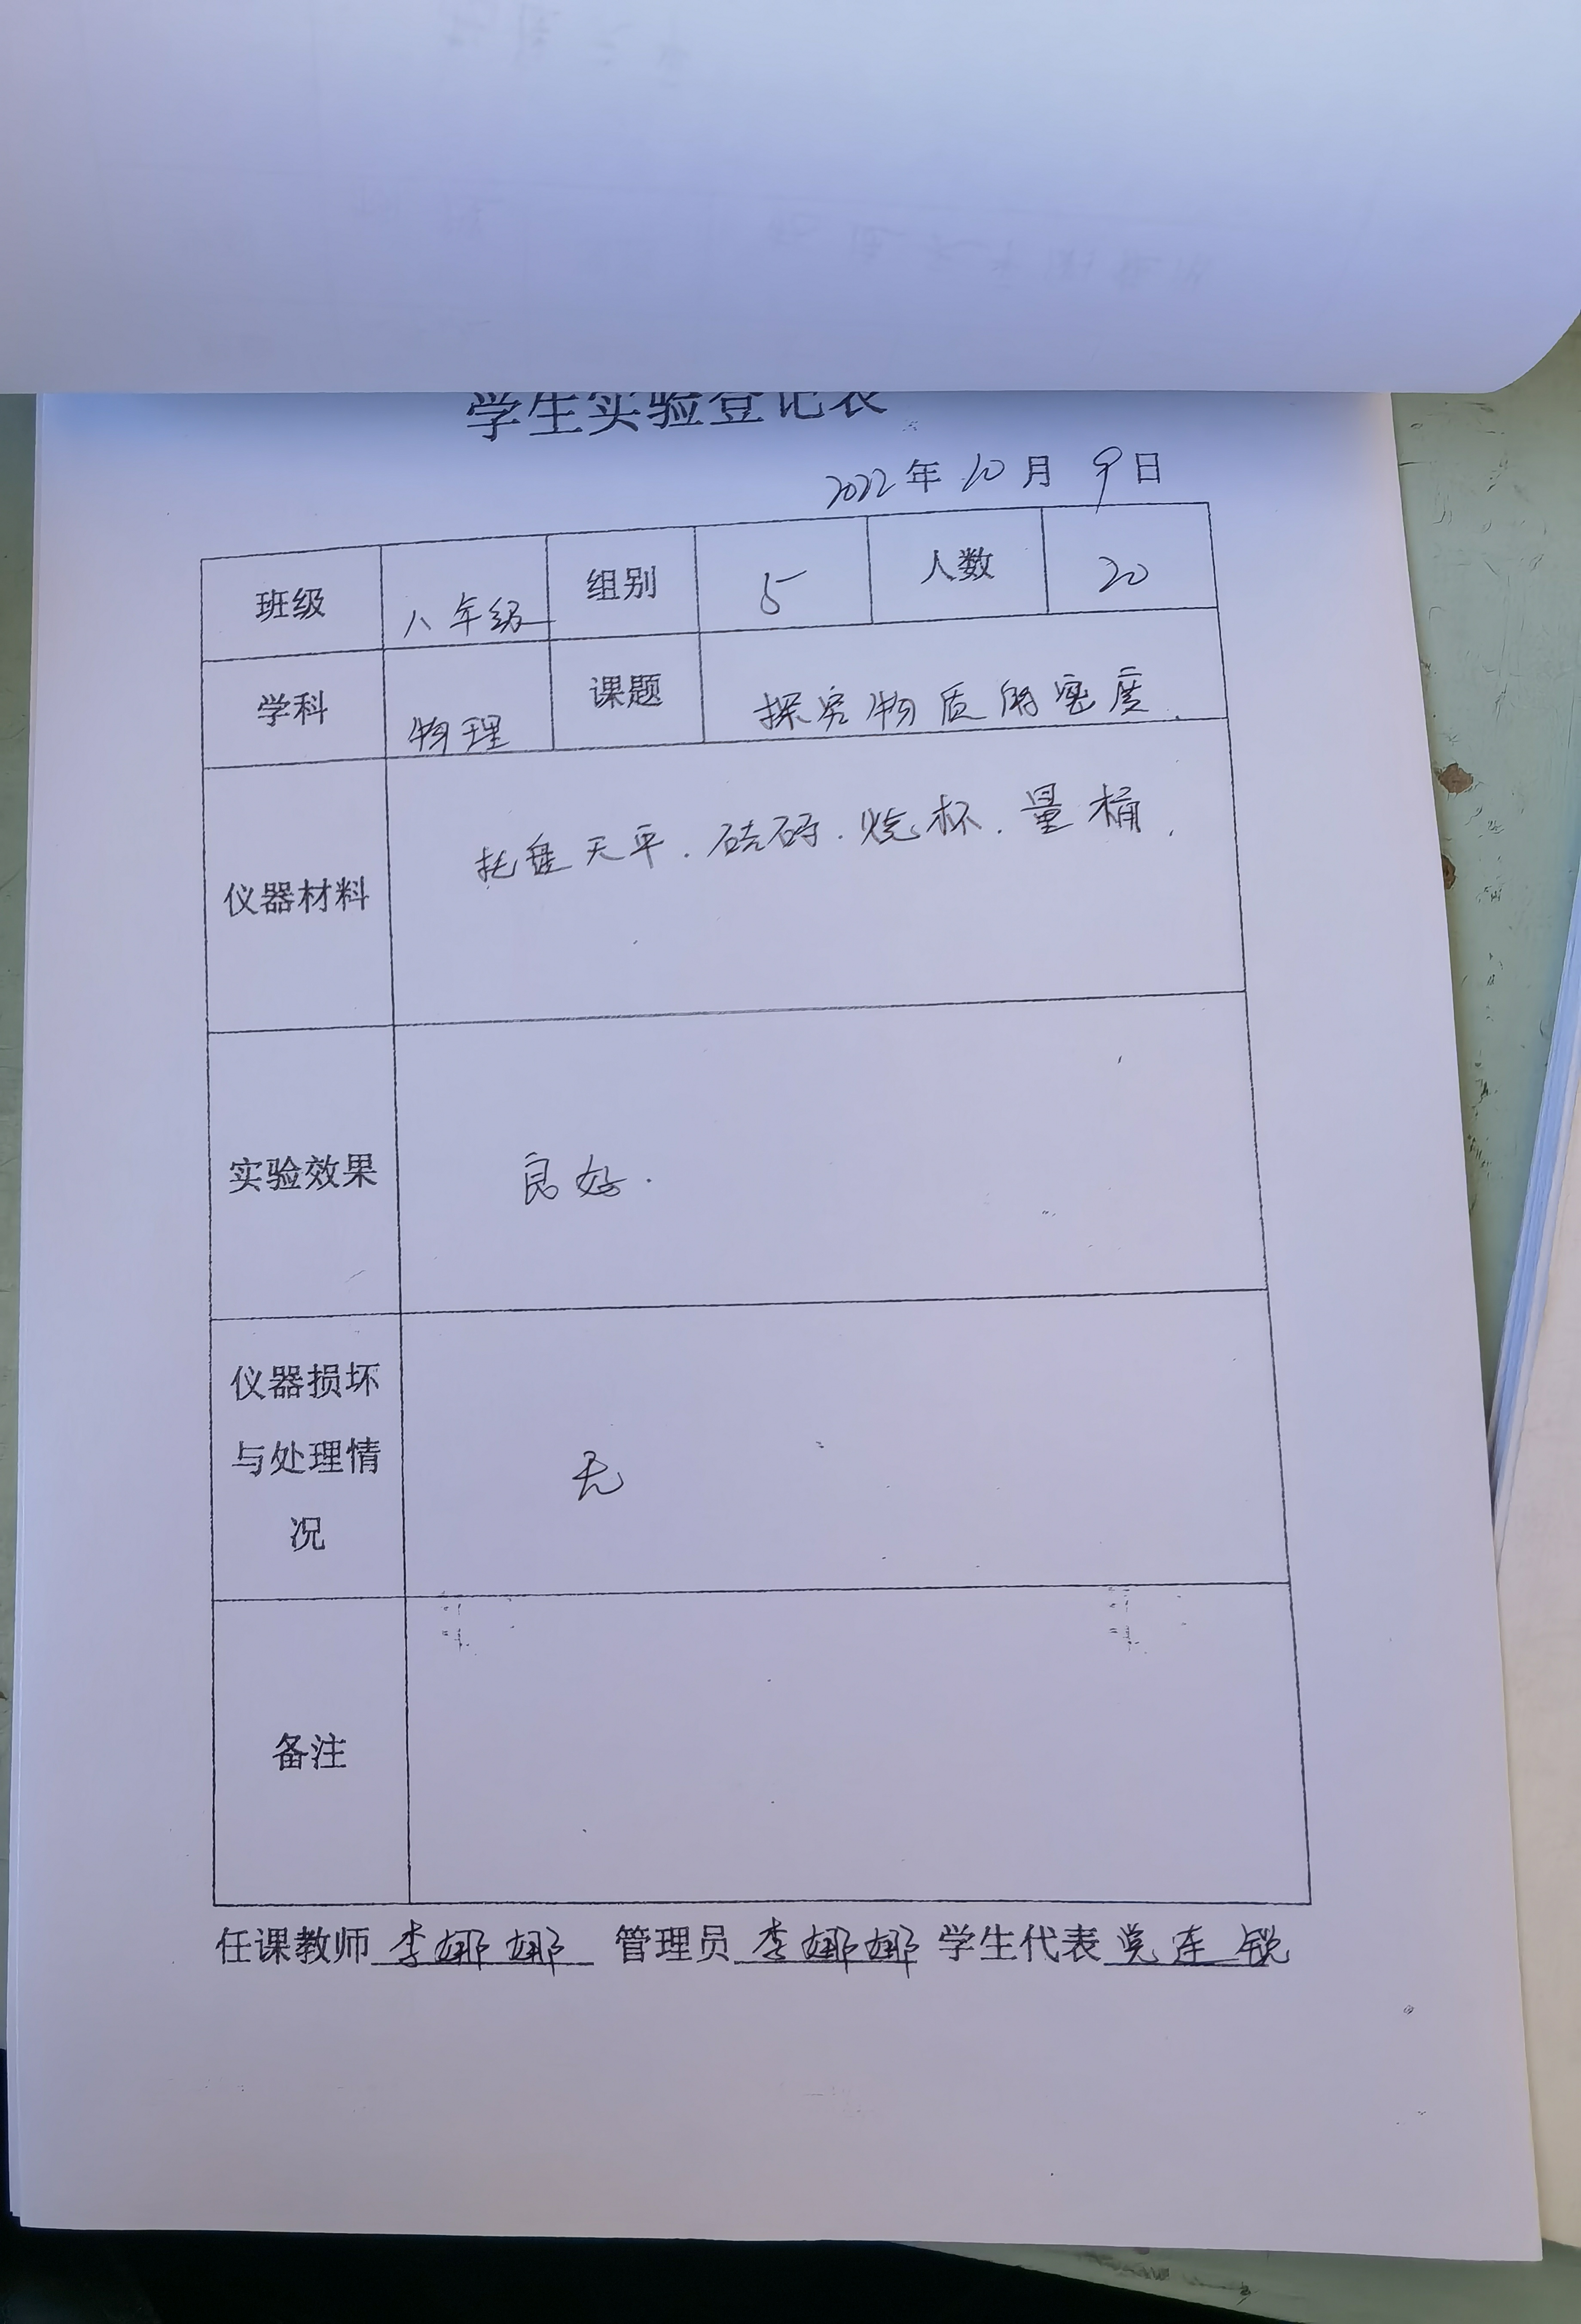 学生实验登记表
2022年10月9日
班级 八年级 组别 5 人数 20
学科 物理 课题 探究物质的密度.
仪器材料 托盘天平.砝码.烧杯.量桶.
实验效果 良好.
仪器损坏
与处理情
况
无
备注
任课教师 李娜娜 管理员 李娜娜 学生代表 党连锁